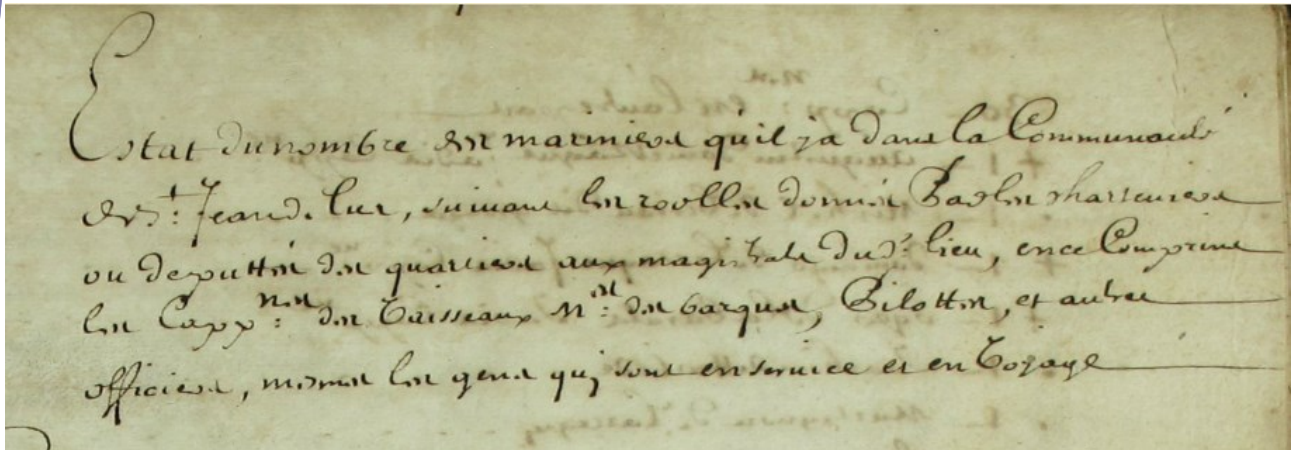 Estat du nombre des mariniers quil ja dans la Communauté
de St: Jean de Luz, suivant les roolles donnés Par les chasseuriers
ou deputtés des quartiers aux magistrats dud: lieu, en ce Comprins
les Cappnes: des Vaisseaux Mres: de barques, Pilottes, et autres
officiers, mesmes les gens quj sont en service et en Voyage